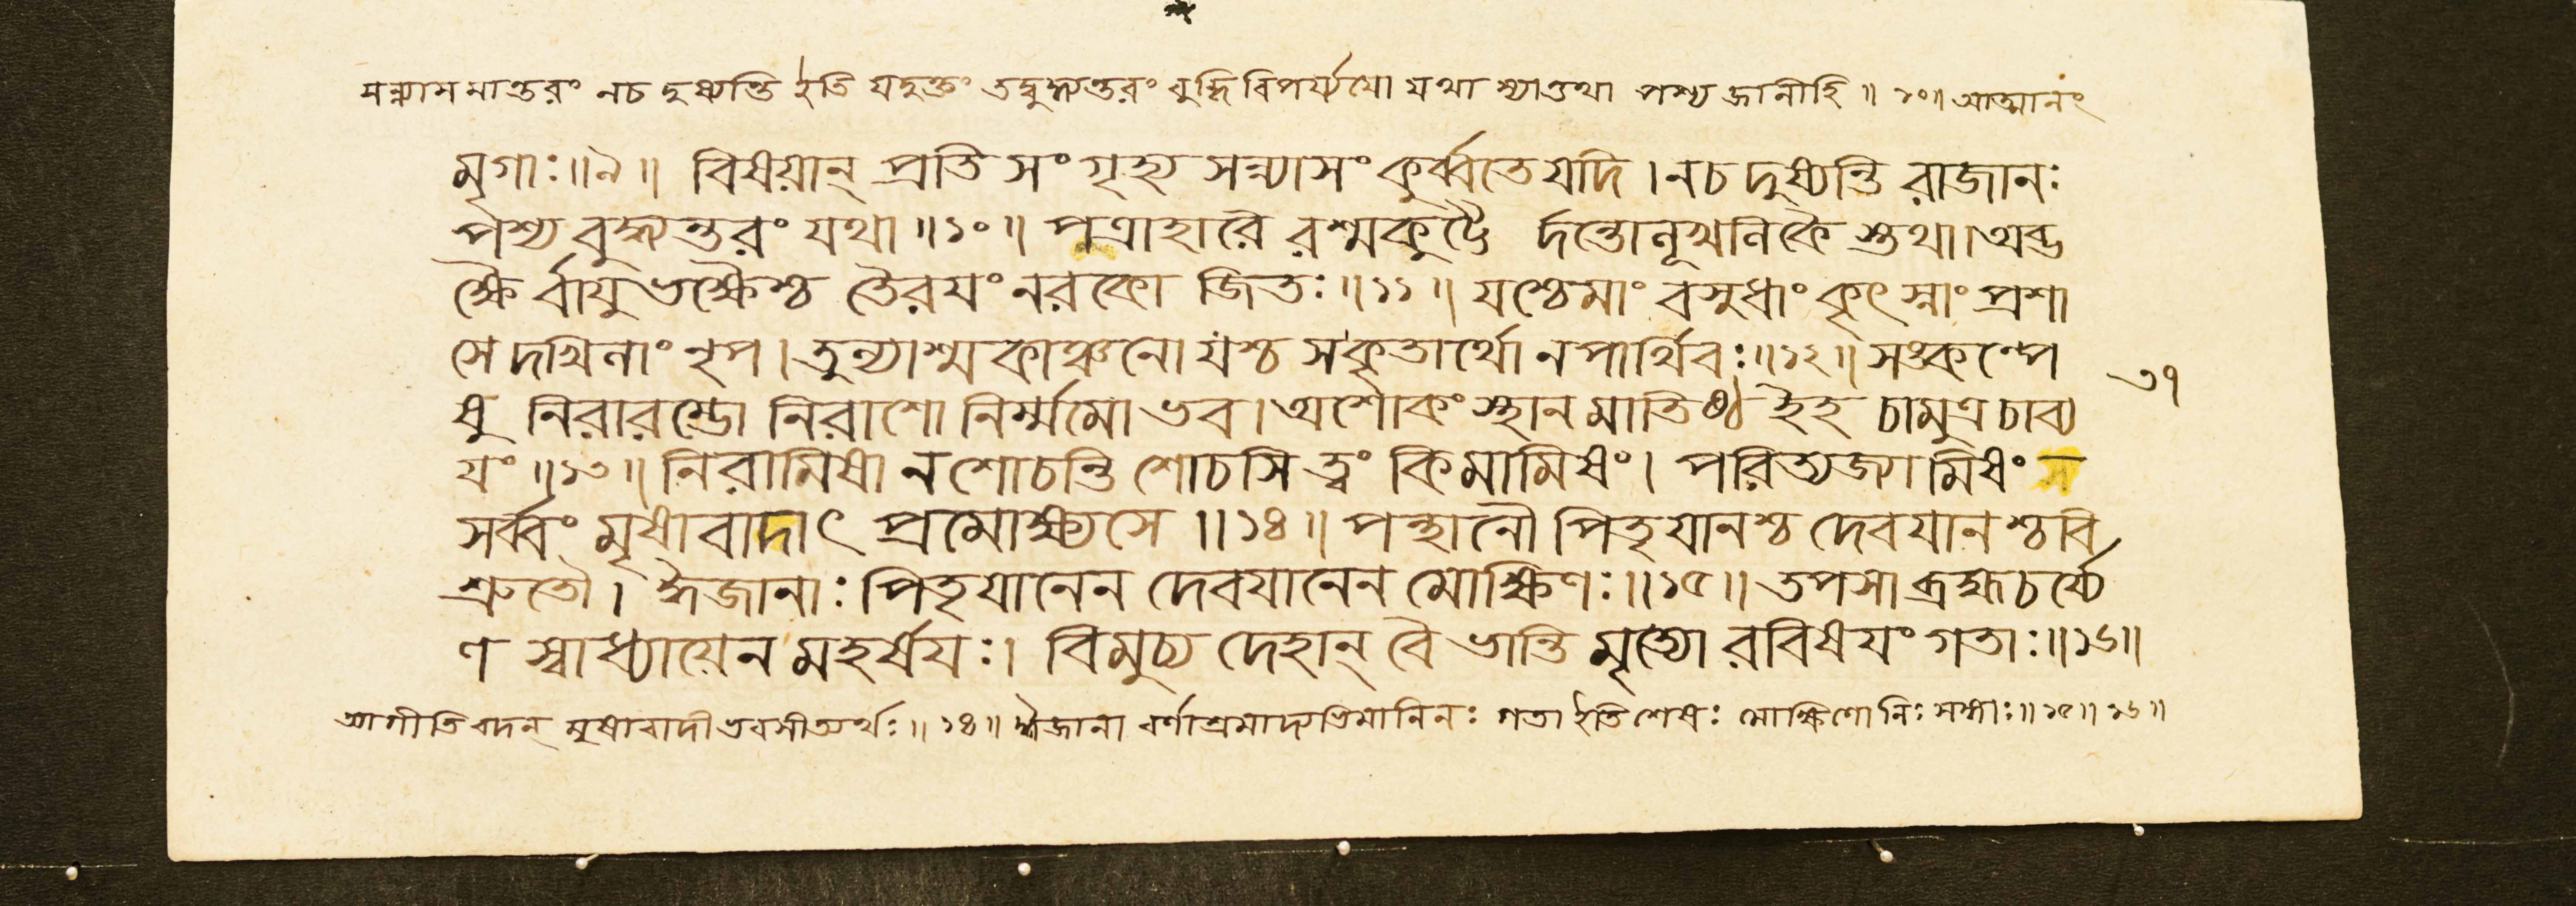 সন্ন্যাসমাত্তরং নচ দুষ্যন্তি ইতি যদুক্তং তদ্বুদ্ধ্যন্তরং বুদ্ধিবিপর্য্যয়ো যথা স্যাত্তথা পশ্য জানীহি ॥ ১০॥ আত্মানং
মৃগাঃ॥৯॥ বিষয়ান্ প্রতিসংগৃহ্য সন্ন্যাসং কুর্ব্বতে যদি। নচ দুষ্যন্তি রাজানঃ
পশ্য বুদ্ধ্যন্তরং যথা ॥১০॥ পত্রাহারৈ রশ্মকুট্টৈ র্দন্তোলূখলিকৈ স্তথা। অব্ভ
ক্ষৈ র্বায়ুভক্ষৈশ্চ তৈরয়ং নরকো জিতঃ॥১১॥ যশ্চেমাং বসুধাং কৃৎস্নাং প্রশা
সেদখিলাং নৃপ। তুল্যাশ্মকাঞ্চনো যশ্চ সকৃতার্থো নপার্থিবঃ॥১২॥ সঙ্কল্পে
ষু নিরারম্ভো নিরাশো নির্ম্মমো ভব। অশোকং স্থানমাতিষ্ঠ ইহ চামুত্র চাব্য
য়ং ॥১৩॥ নিরামিষা ন শোচন্তি শোচসি ত্বং কিমামিষং। পরিত্যজ্যামিষং স
সর্ব্বং মৃষাবাদাৎ প্রমোক্ষ্যসে ॥১৪॥ পন্থানৌ পিতৃযানশ্চ দেবযানশ্চ বি
শ্রুতৌ। ঈজানাঃ পিতৃযানেন দেবযানেন মোক্ষিণঃ॥১৫॥ তপসা ব্রহ্মচর্য্যে
ণ স্বাধ্যায়েন মহর্ষয়ঃ। বিমুচ্য দেহান্ বৈ ভান্তি মৃত্যো রবিষয়ং গতাঃ॥১৬॥
৩৭
ত্যাগীতি বদন্ মৃষাবাদী ভবসীত্যর্থঃ॥ ১৪॥ ঈজানা বর্ণাশ্রমাদ্যভিমানিনঃ গতা ইতি শেষঃ মোক্ষিণো নিঃসঙ্গাঃ॥ ১৫॥ ১৬॥